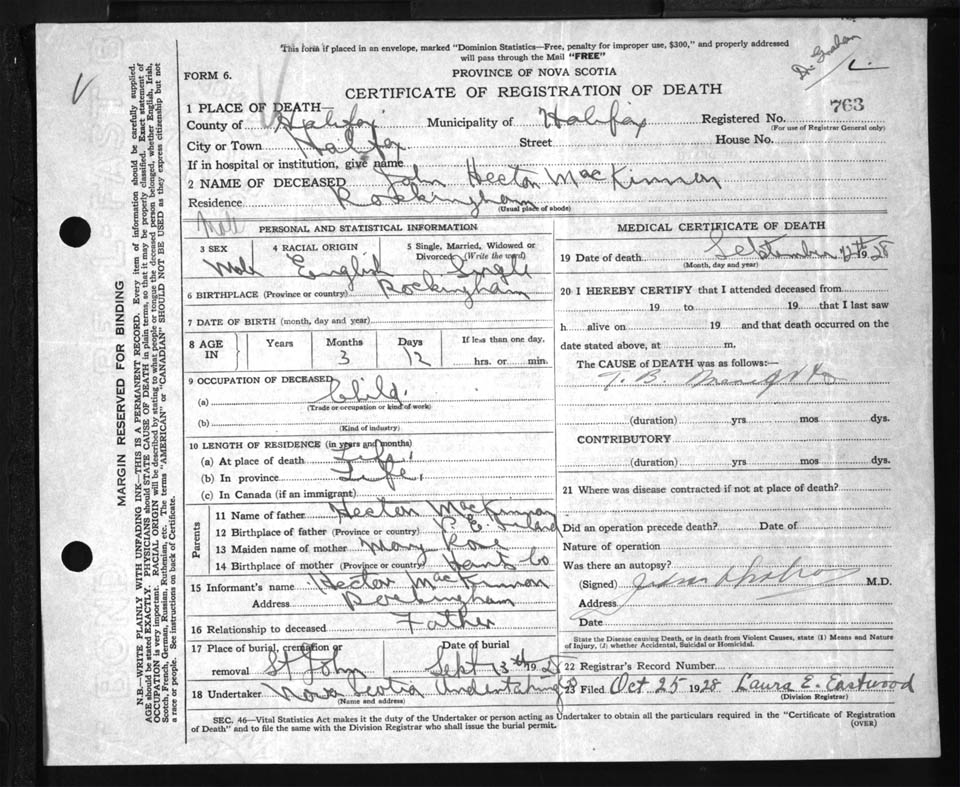 This form if placed in an envelope, marked "Dominion Statistics—Free, penalty for improper use, $300," and properly addressed
will pass through the Mail "FREE"
Dr Graham
FORM 6.
PROVINCE OF NOVA SCOTIA
CERTIFICATE OF REGISTRATION OF DEATH
763
1 PLACE OF DEATH—
County of Halifax Municipality of Halifax Registered No.
(For use of Registrar General only)
City or Town Halifax Street House No.
If in hospital or institution, give name
2 NAME OF DECEASED John Hector MacKinnon
Residence Rockingham
(Usual place of abode)
PERSONAL AND STATISTICAL INFORMATION
3 SEX 4 RACIAL ORIGIN 5 Single, Married, Widowed or
Divorced (Write the word)
Male English Single
6 BIRTHPLACE (Province or country) Rockingham
7 DATE OF BIRTH (month, day and year)
8 AGE IN Years Months Days If less than one day,
3 12 hrs. or min.
9 OCCUPATION OF DECEASED
(a) Child
(Trade or occupation or kind of work)
(b)
(Kind of industry)
10 LENGTH OF RESIDENCE (in years and months)
(a) At place of death Life
(b) In province Life
(c) In Canada (if an immigrant)
Parents
11 Name of father Hector MacKinnon
12 Birthplace of father (Province or country) P. E. Island
13 Maiden name of mother Mary Rose
14 Birthplace of mother (Province or country) Hants Co
15 Informant's name Hector MacKinnon
Address Rockingham
16 Relationship to deceased Father
17 Place of burial, cremation or Date of burial
removal St John Sept 13th 1928
18 Undertaker Nova Scotia Undertaking
(Name and address)
MEDICAL CERTIFICATE OF DEATH
19 Date of death September 12th 1928
(Month, day and year)
20 I HEREBY CERTIFY that I attended deceased from
19 to 19 that I last saw
h alive on 19 and that death occurred on the
date stated above, at m.
The CAUSE of DEATH was as follows:—
T. B. Meningitis
(duration) yrs mos dys.
CONTRIBUTORY
(duration) yrs mos dys.
21 Where was disease contracted if not at place of death?
Did an operation precede death? Date of
Nature of operation
Was there an autopsy?
(Signed) M.D.
Address
Date
State the Disease causing Death, or in death from Violent Causes, state (1) Means and Nature
of Injury, (2) whether Accidental, Suicidal or Homicidal.
22 Registrar's Record Number
23 Filed Oct 25 1928 Laura E. Eastwood
(Division Registrar)
SEC. 46—Vital Statistics Act makes it the duty of the Undertaker or person acting as Undertaker to obtain all the particulars required in the "Certificate of Registration
of Death" and to file the same with the Division Registrar who shall issue the burial permit.
(OVER)
MARGIN RESERVED FOR BINDING
N.B.—WRITE PLAINLY WITH UNFADING INK—THIS IS A PERMANENT RECORD. Every item of information should be carefully supplied.
AGE should be stated EXACTLY. PHYSICIANS should STATE CAUSE OF DEATH in plain terms, so that it may be properly classified. Exact statement of
OCCUPATION is very important. RACIAL ORIGIN will be described by stating to what people or tongue the deceased person belonged, whether English, Irish,
Scotch, French, German, Russian, Ruthenian, etc. The terms "AMERICAN" or "CANADIAN" SHOULD NOT BE USED as they express citizenship but not
a race or people. See instructions on back of Certificate.